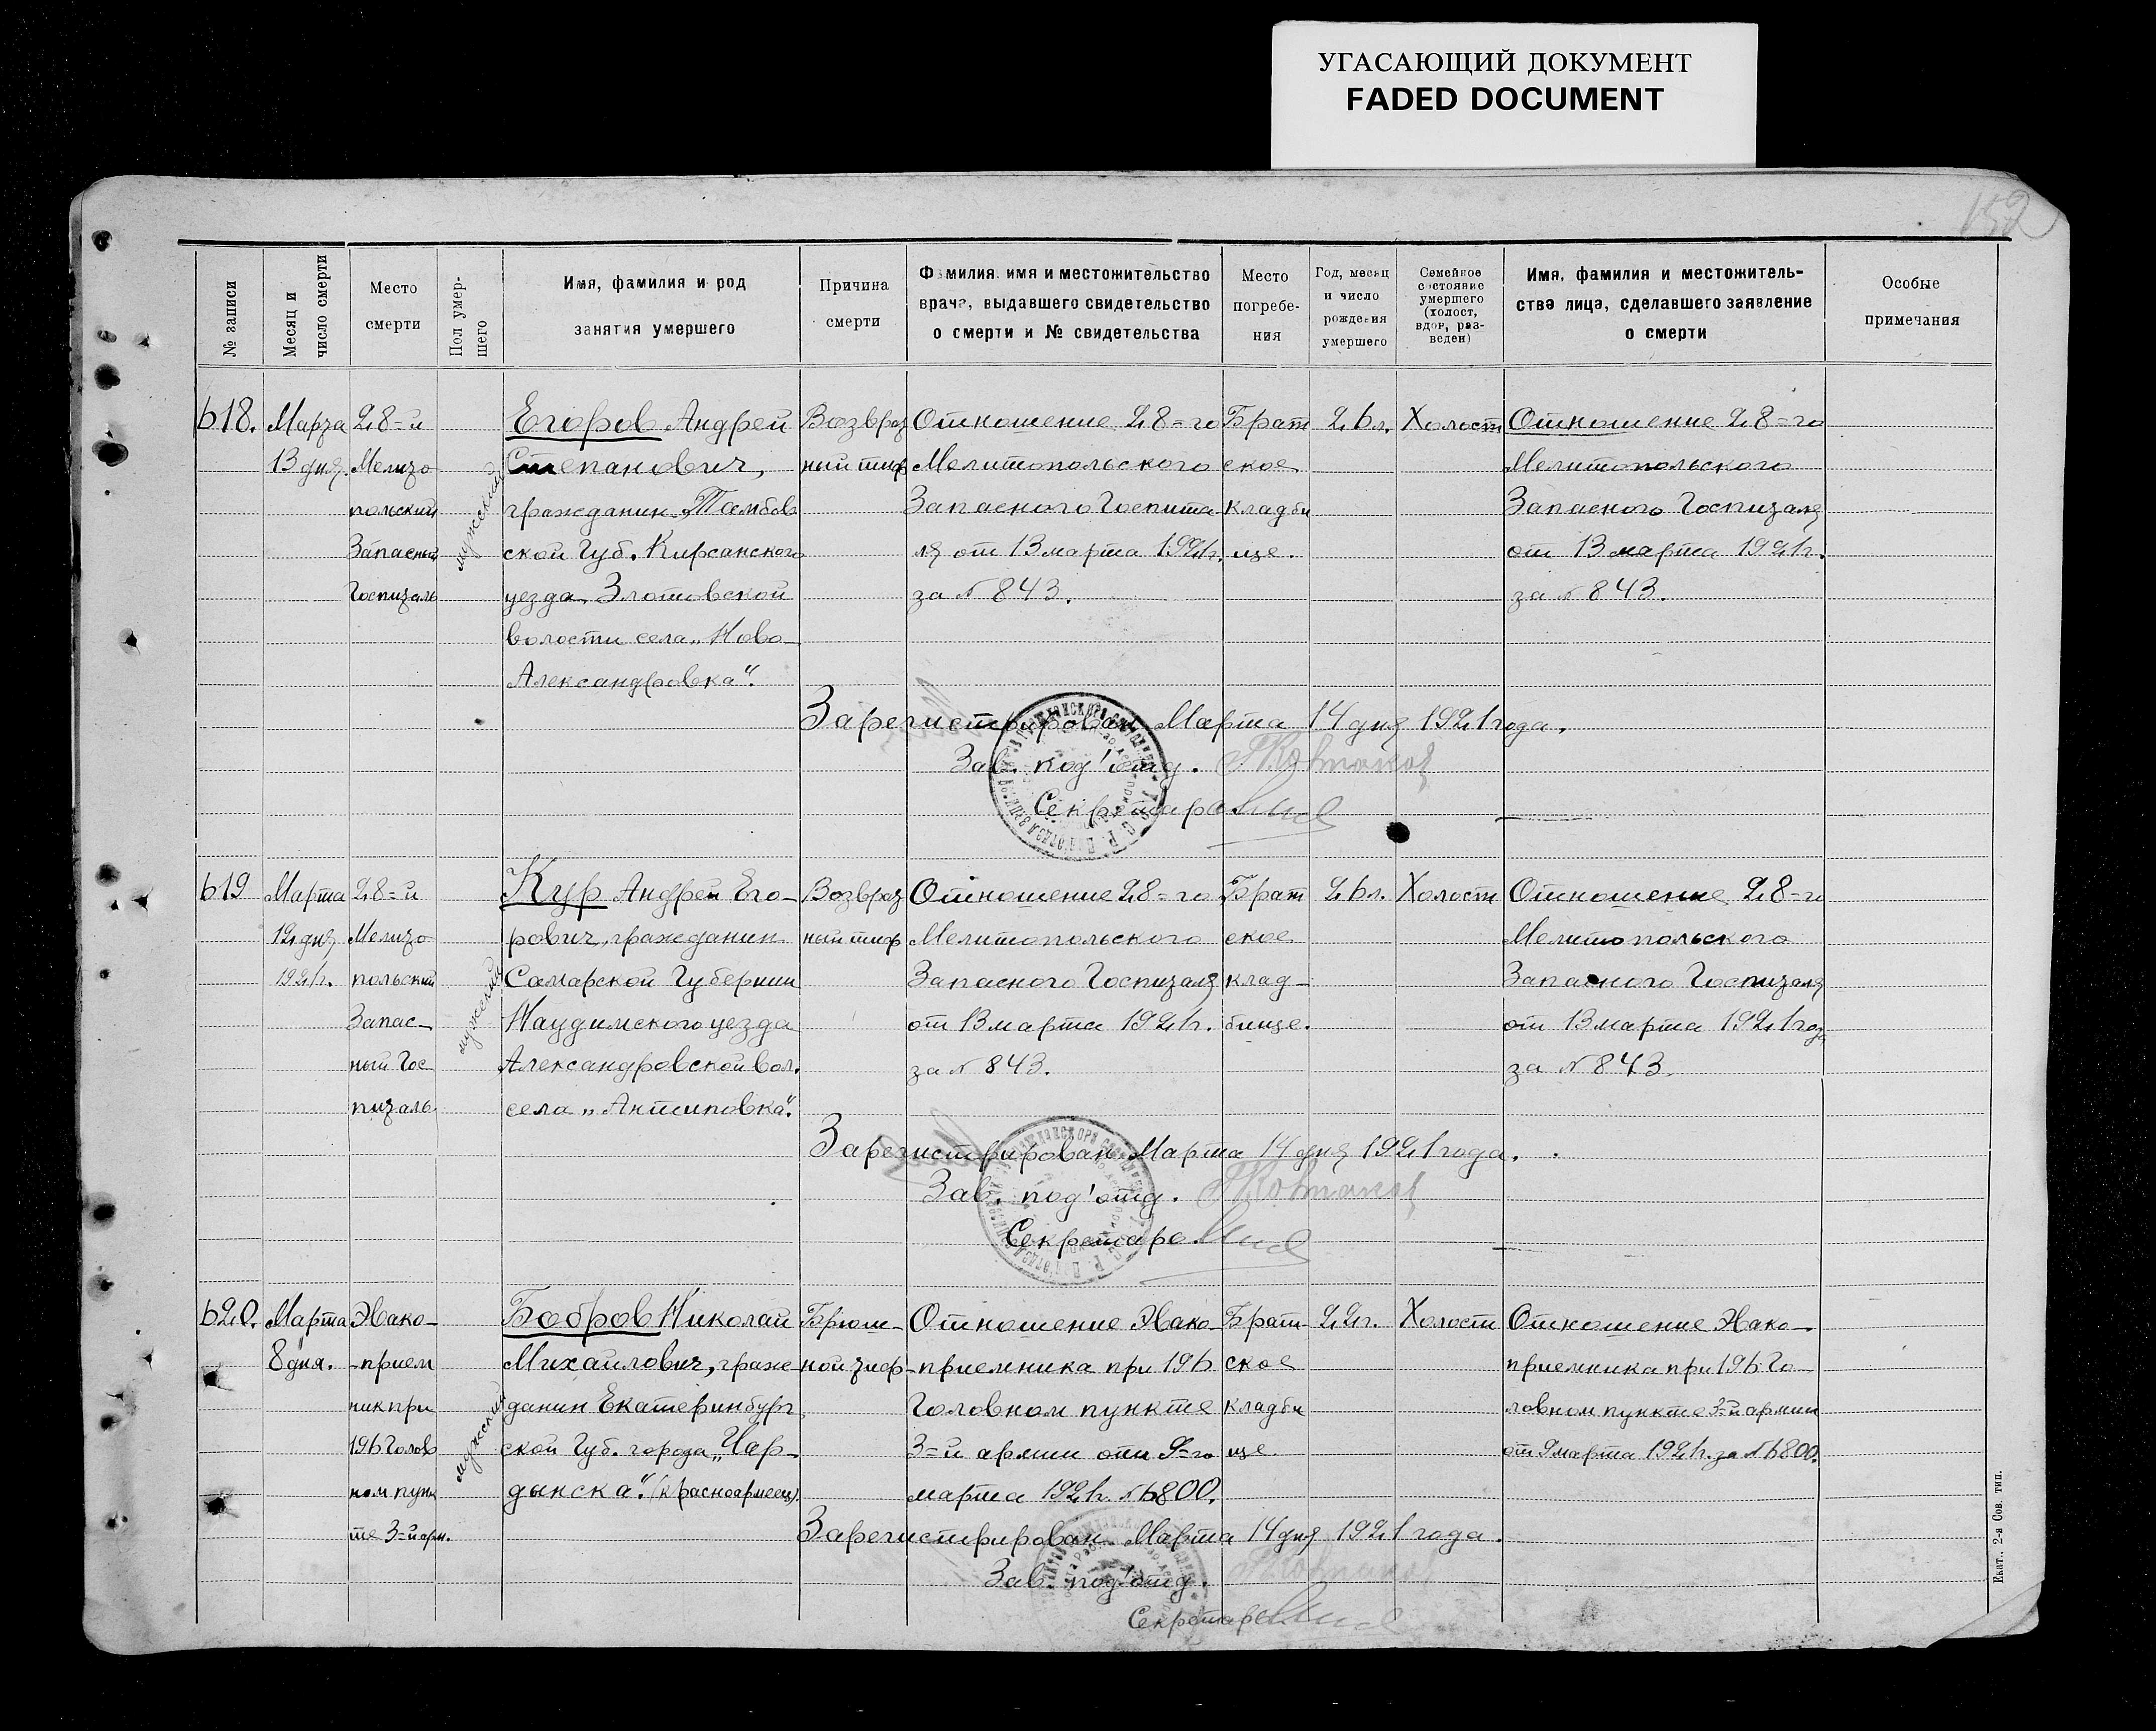 УГАСАЮЩИЙ ДОКУМЕНТ
FADED DOCUMENT
152
№ записи
Месяц и
число смерти
Место
смерти
Пол умер-
шего
Имя, фамилия и род
занятия умершего
Причина
смерти
Фамилия, имя и местожительство
врача, выдавшего свидетельство
о смерти и № свидетельства
Место
погребе-
ния
Год, месяц
и число
рождения
умершего
Семейное
состояние
умершего
(холост,
вдов, раз-
веден)
Имя, фамилия и местожитель-
ства лица, сделавшего заявление
о смерти
Особые
примечания
618.
Марта
13 дня.
28=й
Мелито
польский
Запасный
Госпиталь
мужской
Егоров Андрей
Степанович,
гражданин „Тамбов
ской Губ. Кирсанского
уезда, Златовской
волости села „Ново-
Александровка“.
Возврат
ный тиф
Отношение 28=го
Мелитопольского
Запасного Госпита
ля от 13 марта 1921г.
за № 843.
Брат
ское
кладби
ще.
26л.
Холост
Отношение 28=го
Мелитопольского
Запасного Госпиталя
от 13 марта 1921г.
за № 843.
Зарегистрирован Марта 14 дня 1921 года.
Зав. под'отд.
Секретарь
619
Марта
12 дня
1921г.
28=й
Мелито
польский
Запас-
ный Гос
питаль
мужской
Кур Андрей Его-
рович, гражданин
Самарской Губернии
Александровской вол.
села „Антиповка“.
Возврат
ный тиф
Отношение 28=го
Мелитопольского
Запасного Госпиталя
от 13 марта 1921г.
за № 843.
Брат
ское
клад-
бище.
26л.
Холост
Отношение 28=го
Мелитопольского
Запасного Госпиталя
от 13 марта 1921 года
за № 843.
Зарегистрирован Марта 14 дня 1921 года.
Зав. под'отд.
Секретарь
620.
Марта
8 дня.
Эвако-
-прием
ник при
196 Голов
ном пунк
те 3=й арм.
мужской
Бобров Николай
Михаилович, граж
данин Екатеринбург
ской Губ. города „Чар-
дынска“. (красноармеец)
Брюш-
ной тиф
Отношение Эвако-
-приемника при 196
Головном пункте
3=й армии от 9=го
марта 1921г. №6800.
Брат-
ское
кладби
ще
22г.
Холост
Отношение Эвако-
приемника при 196 Го-
ловном пункте 3=й армии
от 9 марта 1921г. за №6800.
Зарегистрирован Марта 14 дня 1921 года.
Зав. под'отд.
Секретарь
Екат., 2-я Сов. тип.